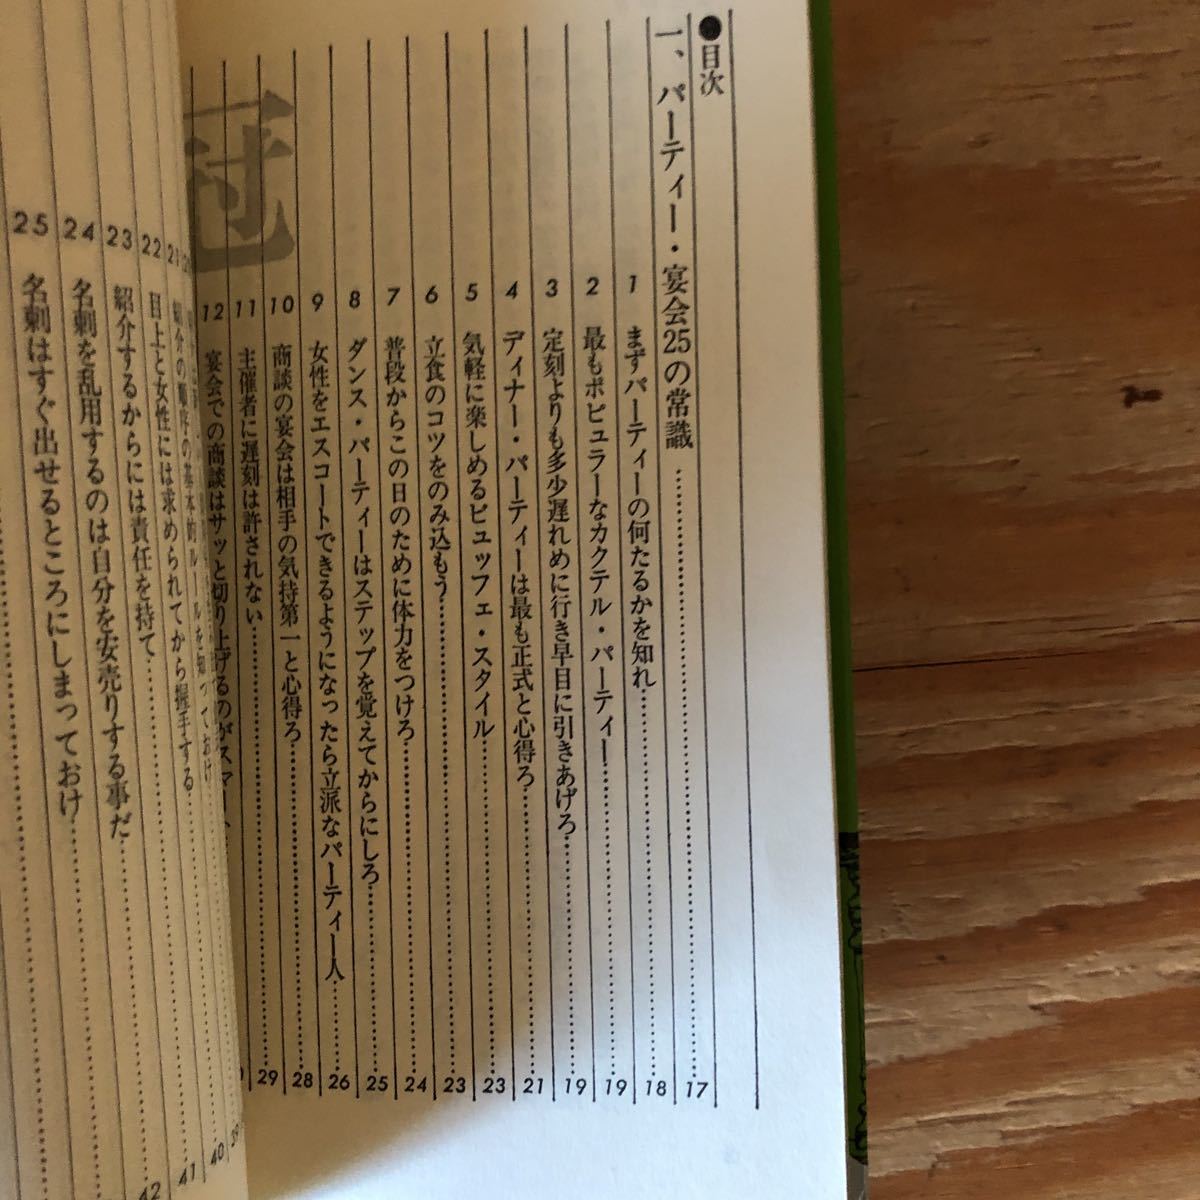 ●目次
一、パーティー・宴会25の常識……………17
1 まずパーティーの何たるかを知れ……………18
2 最もポピュラーなカクテル・パーティー……………19
3 定刻よりも多少遅れめに行き早目に引きあげろ……………19
4 ディナー・パーティーは最も正式と心得ろ……………21
5 気軽に楽しめるビュッフェ・スタイル……………23
6 立食のコツをのみ込もう……………23
7 普段からこの日のために体力をつけろ……………24
8 ダンス・パーティーはステップを覚えてからにしろ……………25
9 女性をエスコートできるようになったら立派なパーティー人……………26
10 商談の宴会は相手の気持第一と心得ろ……………28
11 主催者に遅刻は許されない……………29
12 宴会での商談はサッと切り上げるのがスマート
冠
21 紹介の順序の基本的ルールを知っておけ……………
22 目上と女性には求められてから握手する……………
23 紹介するからには責任を持て……………
24 名刺を乱用するのは自分を安売りする事だ……………
25 名刺はすぐ出せるところにしまっておけ……………
39
40
41
42